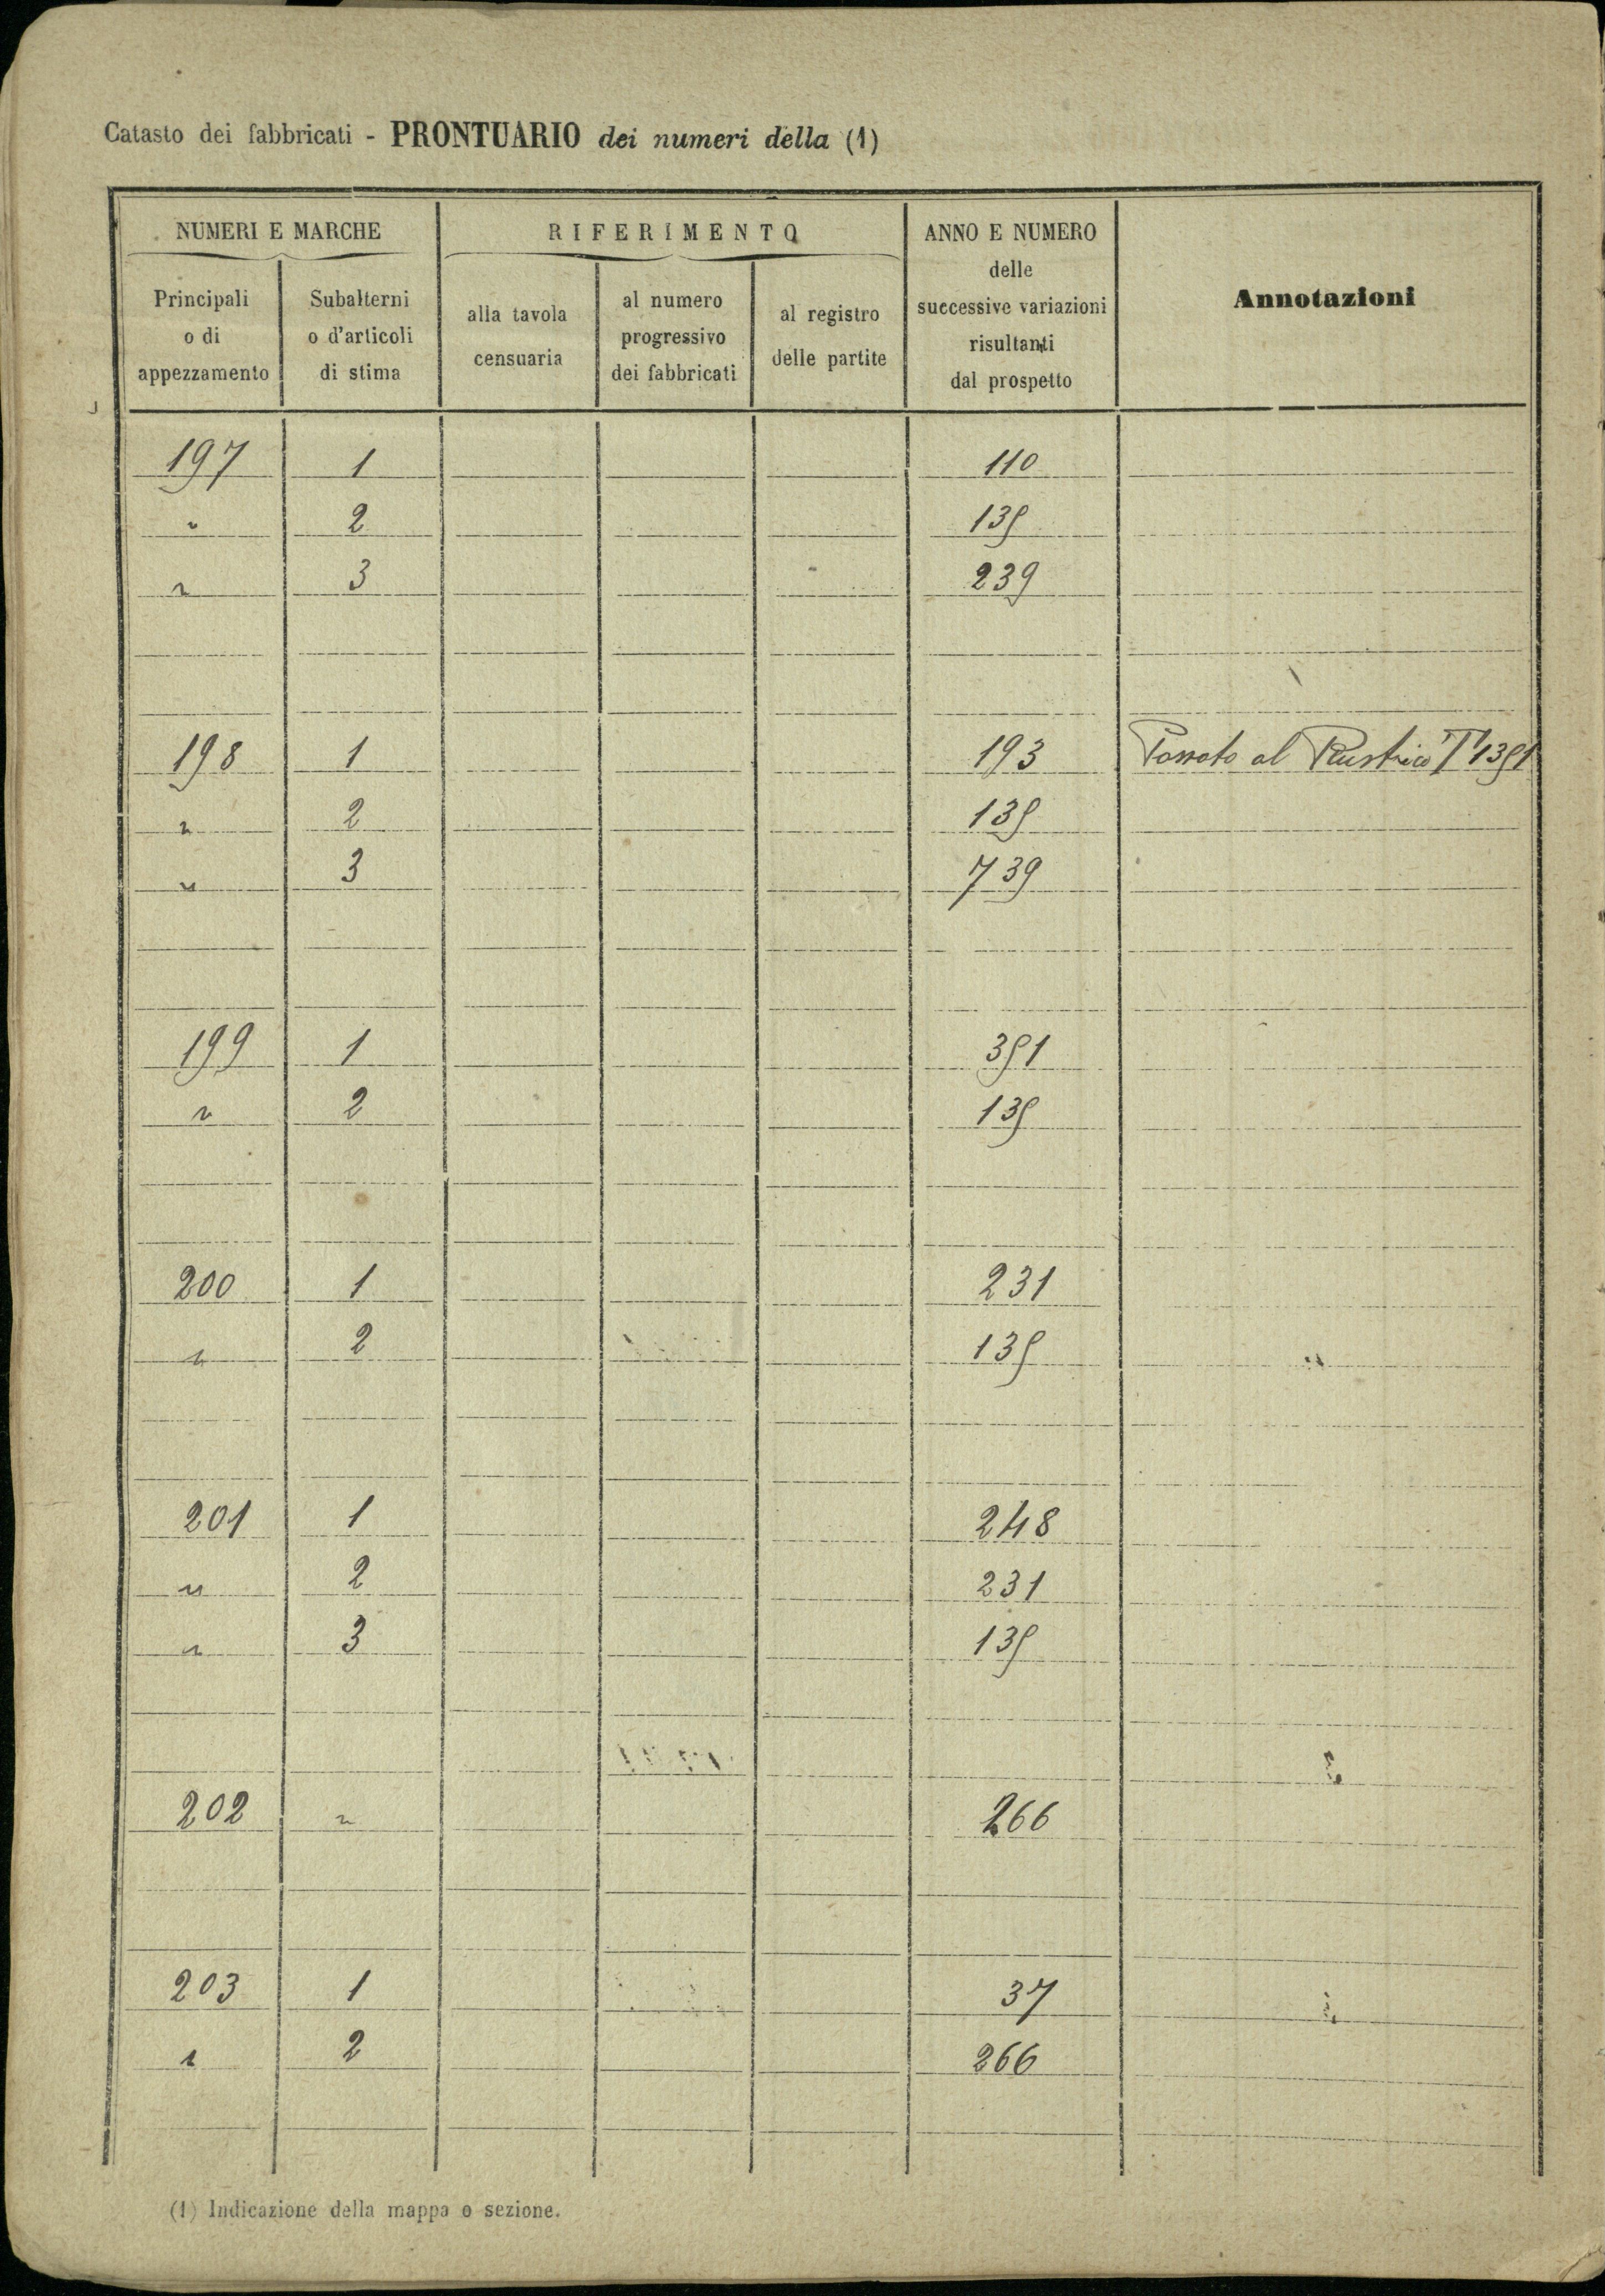 Catasto dei fabbricati - PRONTUARIO dei numeri della (1)
NUMERI E MARCHE
RIFERIMENTO
ANNO E NUMERO
delle
successive variazioni
risultanti
dal prospetto
Annotazioni
Principali
o di
appezzamento
Subalterni
o d'articoli
di stima
alla tavola
censuaria
al numero
progressivo
dei fabbricati
al registro
delle partite
197 1 110
" 2 135
" 3 239
198 1 193 Passato al Rustico T 1351
" 2 135
" 3 739
199 1 351
" 2 135
200 1 231
" 2 135
201 1 248
" 2 231
" 3 135
202 " 266
203 1 37
" 2 266
(1) Indicazione della mappa o sezione.